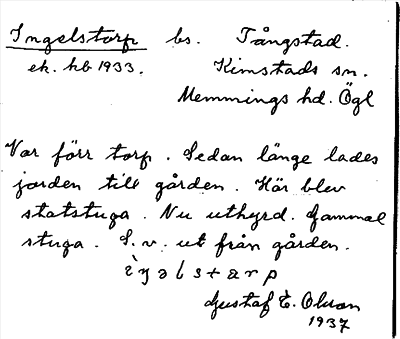 Ingelstorp bs. Tångstad.
ek. hb 1933. Kimstads sn.
Memmings hd. Ögl
Var förr torp. Sedan länge lades
jorden till gården. Här blev
statstuga. Nu uthyrd. Gammal
stuga. S.v. ut från gården.
Gustaf E. Olson
1937